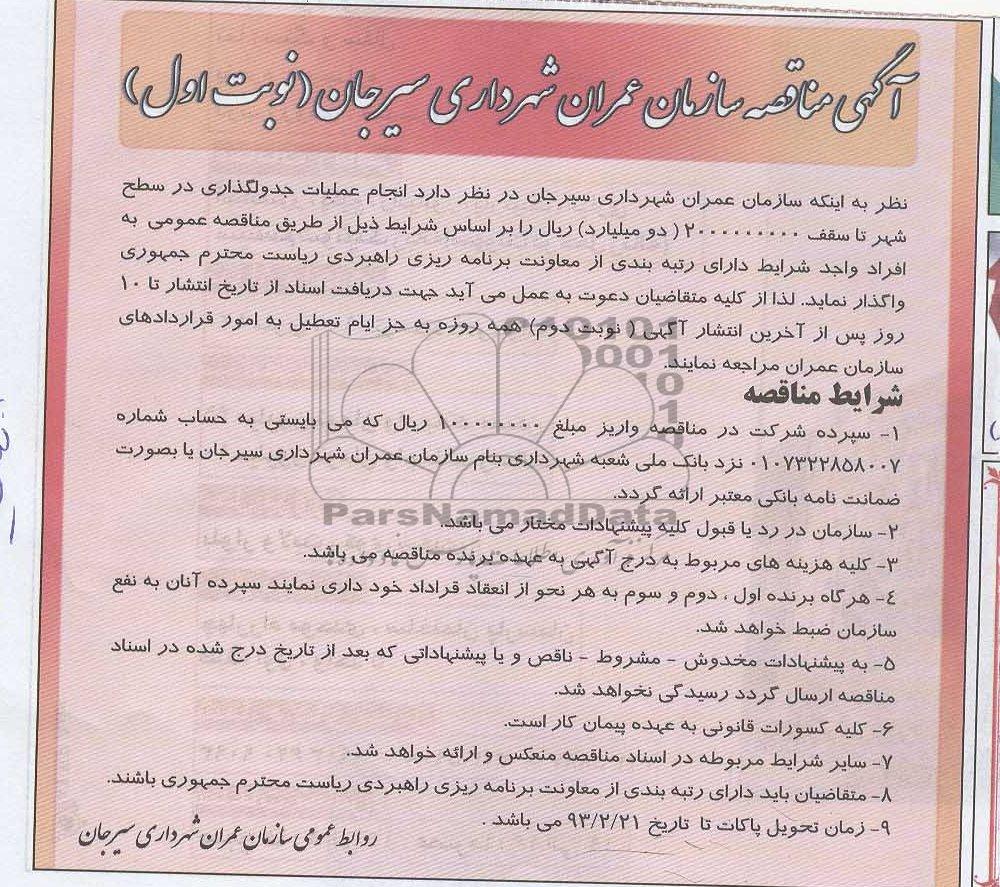 آگهی مناقصه سازمان عمران شهرداری سیرجان (نوبت اول)
نظر به اینکه سازمان عمران شهرداری سیرجان در نظر دارد انجام عملیات جدولگذاری در سطح
شهر تا سقف ۲۰۰۰۰۰۰۰۰۰ ( دو میلیارد) ریال را بر اساس شرایط ذیل از طریق مناقصه عمومی به
افراد واجد شرایط دارای رتبه بندی از معاونت برنامه ریزی راهبردی ریاست محترم جمهوری
واگذار نماید. لذا از کلیه متقاضیان دعوت به عمل می آید جهت دریافت اسناد از تاریخ انتشار تا ۱۰
روز پس از آخرین انتشار آگهی ( نوبت دوم) همه روزه به جز ایام تعطیل به امور قراردادهای
سازمان عمران مراجعه نمایند.
شرایط مناقصه
۱- سپرده شرکت در مناقصه واریز مبلغ ۱۰۰۰۰۰۰۰۰ ریال که می بایستی به حساب شماره
۰۱۰۷۳۲۲۸۵۸۰۰۷ نزد بانک ملی شعبه شهرداری بنام سازمان عمران شهرداری سیرجان یا بصورت
ضمانت نامه بانکی معتبر ارائه گردد.
۲- سازمان در رد یا قبول کلیه پیشنهادات مختار می باشد.
۳- کلیه هزینه های مربوط به درج آگهی به عهده برنده مناقصه می باشد.
٤- هرگاه برنده اول ، دوم و سوم به هر نحو از انعقاد قراداد خود داری نمایند سپرده آنان به نفع
سازمان ضبط خواهد شد.
۵- به پیشنهادات مخدوش - مشروط - ناقص و یا پیشنهاداتی که بعد از تاریخ درج شده در اسناد
مناقصه ارسال گردد رسیدگی نخواهد شد.
۶- کلیه کسورات قانونی به عهده پیمان کار است.
۷- سایر شرایط مربوطه در اسناد مناقصه منعکس و ارائه خواهد شد.
۸- متقاضیان باید دارای رتبه بندی از معاونت برنامه ریزی راهبردی ریاست محترم جمهوری باشند.
۹- زمان تحویل پاکات تا تاریخ ۹۳/۲/۲۱ می باشد .
روابط عمومی سازمان عمران شهرداری سیرجان
ParsNamadData